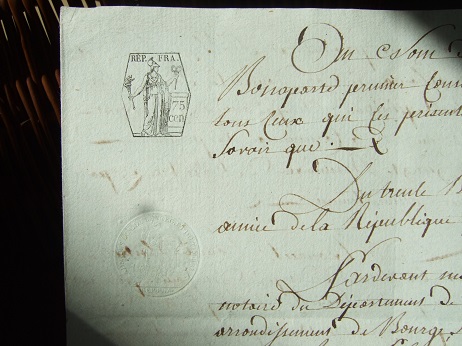 RÉP. FRA.
75
cen
Au Nom d
Bonaparte premier Cons
tous Ceux qui Ces présent
Savoir que
Du trente
année de la République
Pardevant
notaire du Département de
arrondissement de Bourg